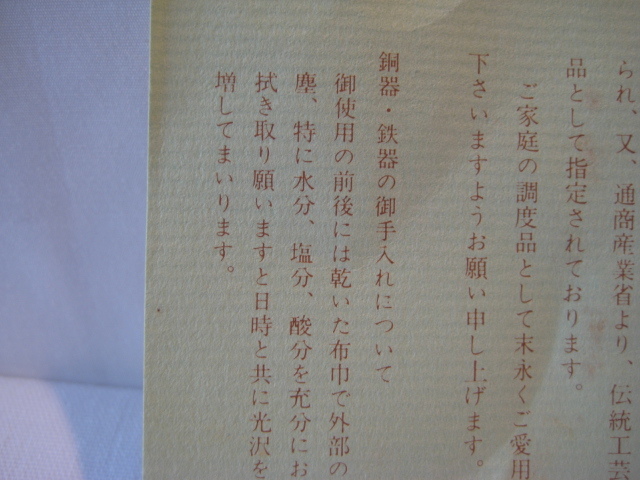 られ、又、通商産業省より、伝統工芸
品として指定されております。
ご家庭の調度品として末永くご愛用
下さいますようお願い申し上げます。
銅器・鉄器の御手入れについて
御使用の前後には乾いた布巾で外部の
塵、特に水分、塩分、酸分を充分にお
拭き取り願いますと日時と共に光沢を
増してまいります。